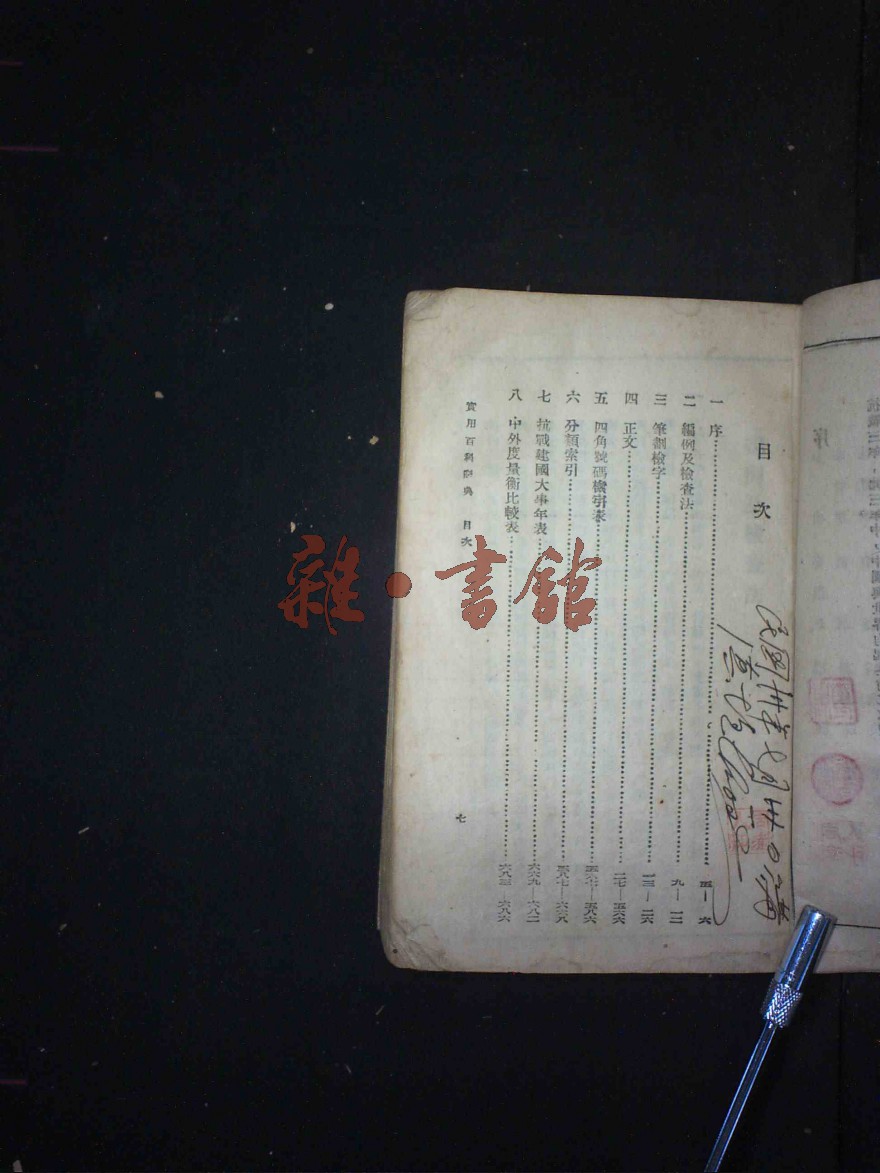 目次
一 序 五—六
二 編例及檢查法 九—一二
三 筆劃檢字 一三—二六
四 正文 二七—五六六
五 四角號碼檢字表 五六七—五八六
六 分類索引 五八七—六六八
七 抗戰建國大事年表 六六九—六八二
八 中外度量衡比較表 六八三—六八六
實用百科辭典 目次
七
序
雜·書館